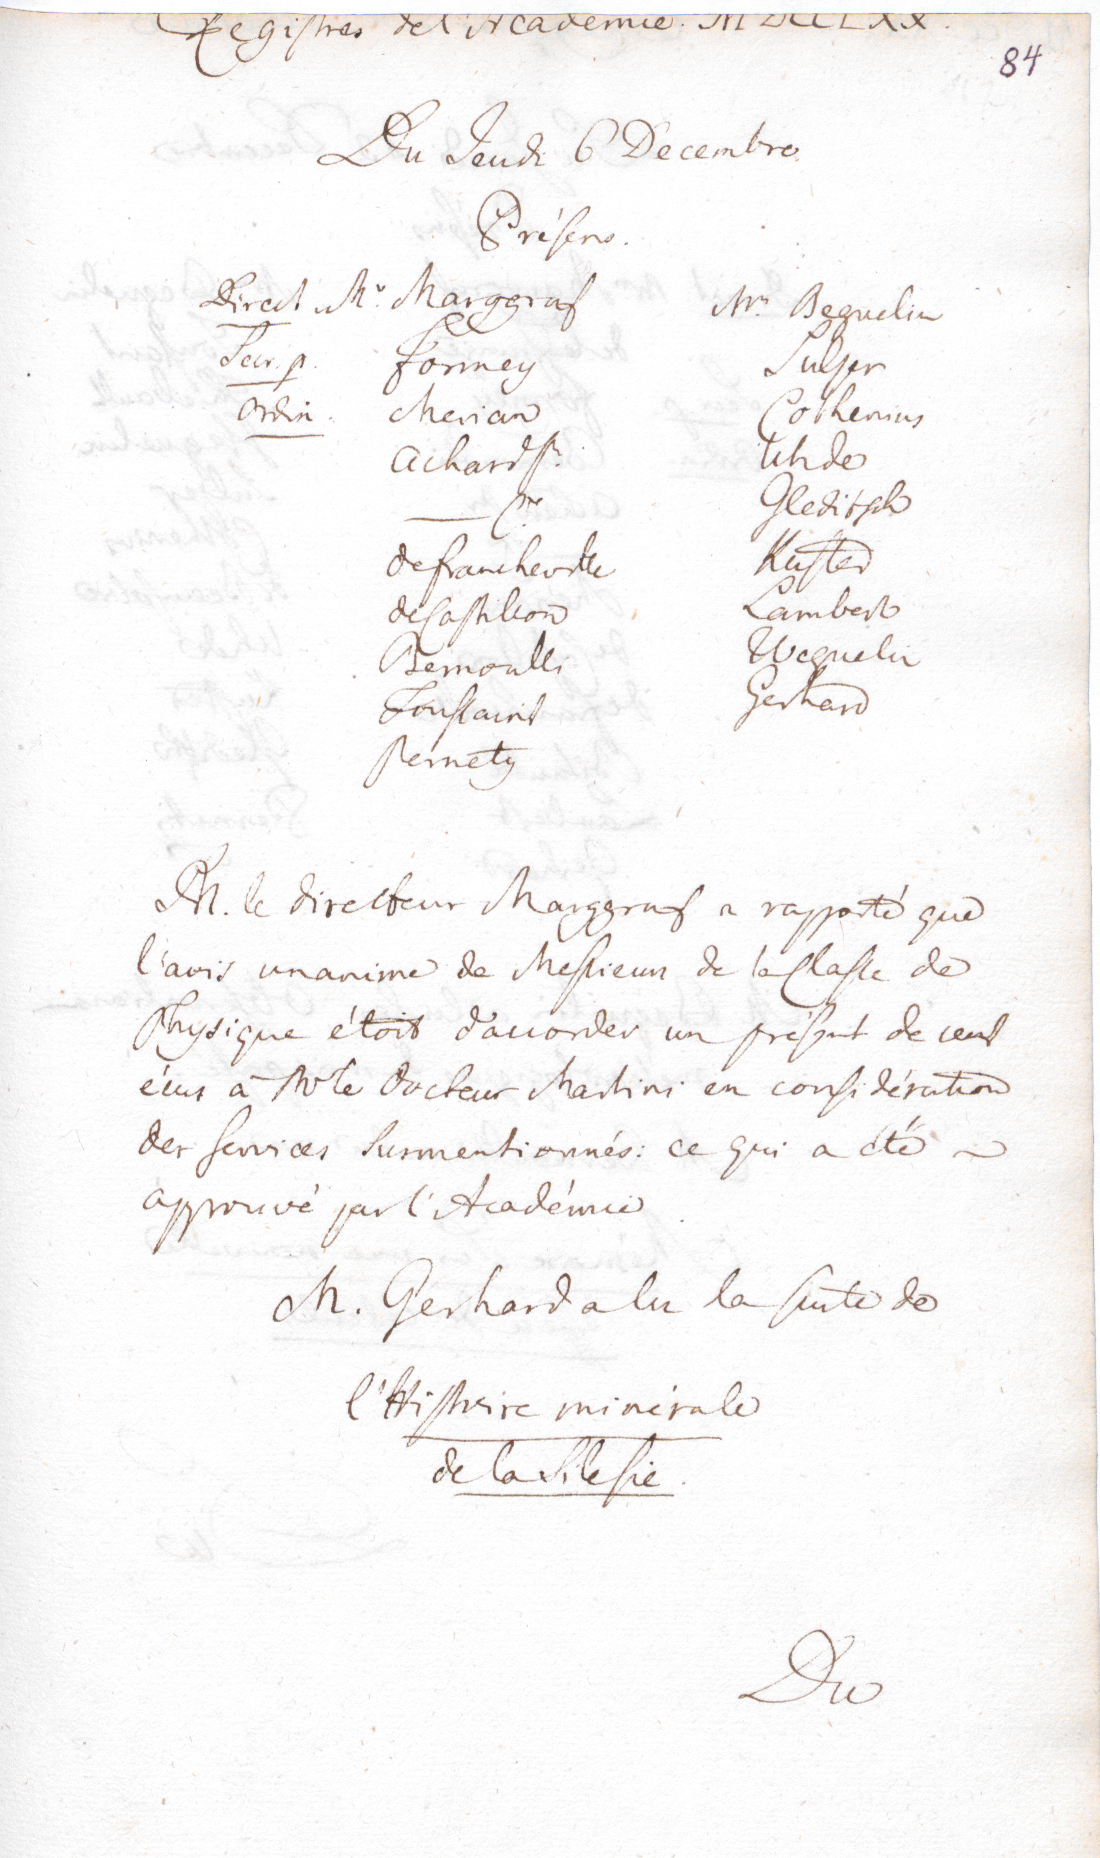 Registres de l'Academie. MDCCLXX.
84
Du Jeudi 6 Decembre
Présens.
Direct. Mr. Marggraf
Secr. p. Formey
Ordin. Merian
Achard Sr.
— Jr.
de Francheville
de Castillon
Bernoulli
Toussaint
Pernety
Mrs. Beguelin
Sulzer
Cothenius
Uhde
Gleditsch
Kuster
Lambert
Weguelin
Gerhard
M. le directeur Marggraf a rapporté que
l'avis unanime de Messieurs de la Classe de
Physique étoit d'accorder un présent de cent
écus à Mr le Docteur Martini en considération
des services surmentionnés: ce qui a été
approuvé par l'Académie
M. Gerhard a lu la suite de
l'Histoire minérale
de la Silesie.
Du